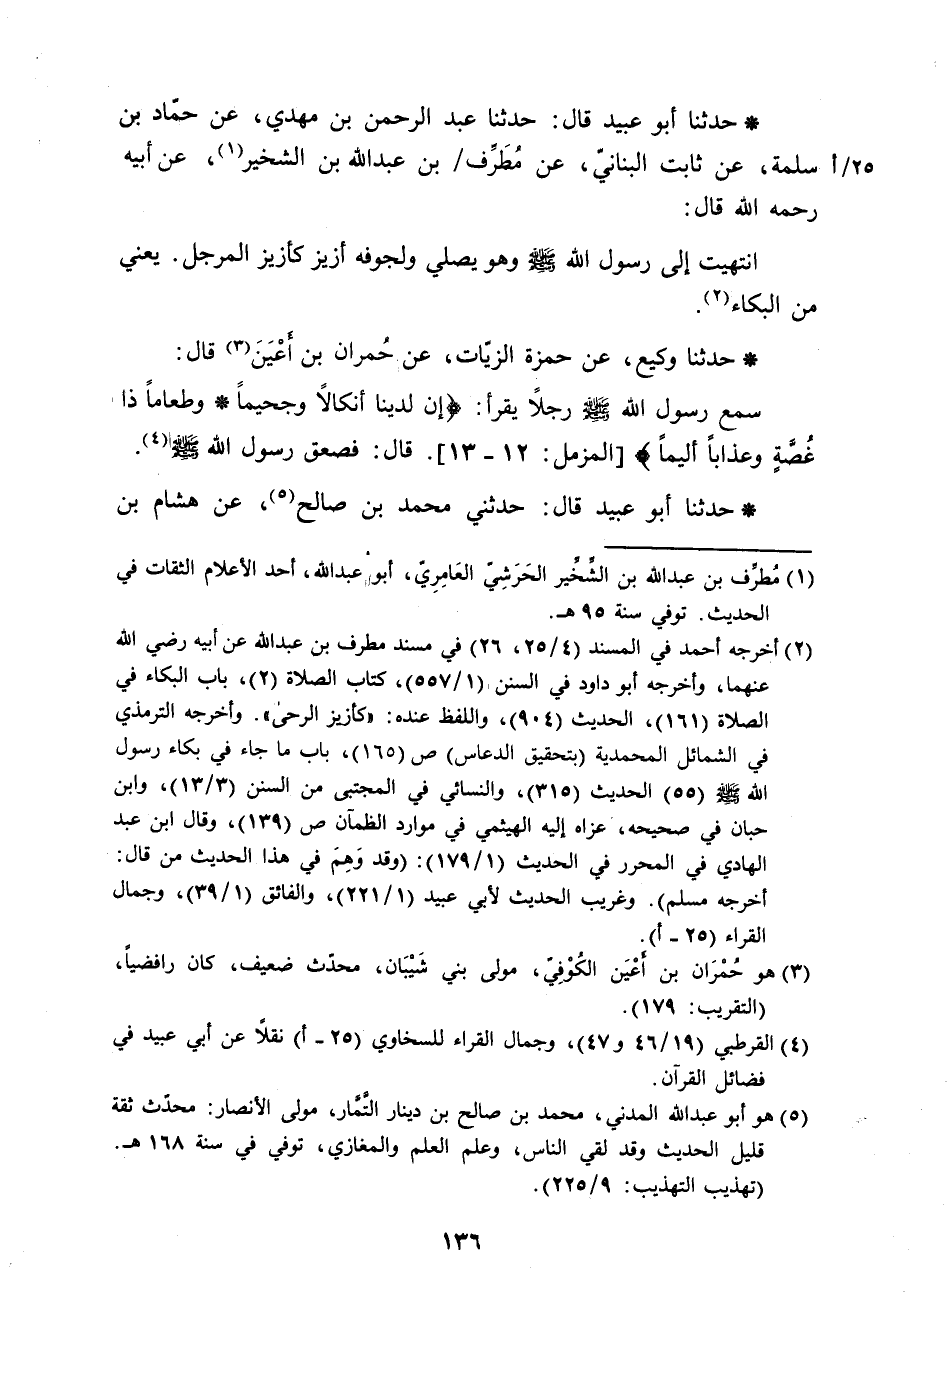 * حدثنا أبو عبيد قال: حدثنا عبد الرحمن بن مهدي، عن حمّاد بن
٢٥/أ سلمة، عن ثابت البنانيّ، عن مُطَرِّف/ بن عبدالله بن الشخير(١)، عن أبيه
رحمه الله قال:
انتهيت إلى رسول الله ﷺ وهو يصلي ولجوفه أزيز كأزيز المرجل. يعني
من البكاء(٢).
* حدثنا وكيع، عن حمزة الزيّات، عن حُمران بن أَعْيَنَ(٣) قال:
سمع رسول الله ﷺ رجلًا يقرأ: ﴿إن لدينا أنكالًا وجحيماً * وطعاماً ذا
غُصَّةٍ وعذاباً أليماً﴾ [المزمل: ١٢ ـ ١٣]. قال: فصعق رسول الله ﷺ(٤).
* حدثنا أبو عبيد قال: حدثني محمد بن صالح(٥)، عن هشام بن
(١) مُطرِّف بن عبدالله بن الشِّخِّير الحَرَشِيّ العَامِرِيّ، أبو عبدالله، أحد الأعلام الثقات في
الحديث. توفي سنة ٩٥ هـ.
(٢) أخرجه أحمد في المسند (٢٥/٤، ٢٦) في مسند مطرف بن عبدالله عن أبيه رضي الله
عنهما، وأخرجه أبو داود في السنن (٥٥٧/١)، كتاب الصلاة (٢)، باب البكاء في
الصلاة (١٦١)، الحديث (٩٠٤)، واللفظ عنده: «كأزيز الرحىٰ». وأخرجه الترمذي
في الشمائل المحمدية (بتحقيق الدعاس) ص (١٦٥)، باب ما جاء في بكاء رسول
الله ﷺ (٥٥) الحديث (٣١٥)، والنسائي في المجتبى من السنن (١٣/٣)، وابن
حبان في صحيحه، عزاه إليه الهيثمي في موارد الظمآن ص (١٣٩)، وقال ابن عبد
الهادي في المحرر في الحديث (١٧٩/١): (وقد وَهِمَ في هذا الحديث من قال:
أخرجه مسلم). وغريب الحديث لأبي عبيد (٢٢١/١)، والفائق (٣٩/١)، وجمال
القراء (٢٥ ـ أ).
(٣) هو حُمْرَان بن أَعْيَن الكُوْفِيّ، مولى بني شَيْبَان، محدّث ضعيف، كان رافضياً،
(التقريب: ١٧٩).
(٤) القرطبي (٤٦/١٩ و٤٧)، وجمال القراء للسخاوي (٢٥ ـ أ) نقلًا عن أبي عبيد في
فضائل القرآن.
(٥) هو أبو عبدالله المدني، محمد بن صالح بن دينار التَّمَّار، مولى الأنصار: محدّث ثقة
قليل الحديث وقد لقي الناس، وعلم العلم والمغازي، توفي في سنة ١٦٨ هـ.
(تهذيب التهذيب: ٢٢٥/٩).
١٣٦